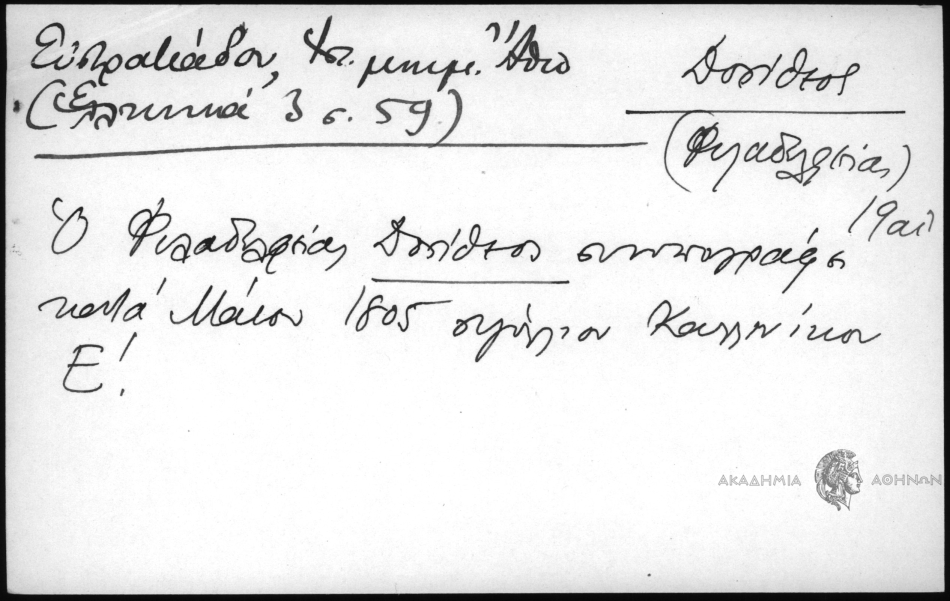 Εὐστρατιάδου, Ἱστ. μνημ. Ἄθω
(Ἑλληνικά 3 σ. 59)
Δοσίθεος
(Φιλαδελφείας)
19 αἰ
Ὁ Φιλαδελφείας Δοσίθεος συνυπογράφει
κατά Μάιον 1805 σιγίλλιον Καλλινίκου
Ε!
ΑΚΑΔΗΜΙΑ ΑΘΗΝΩΝ